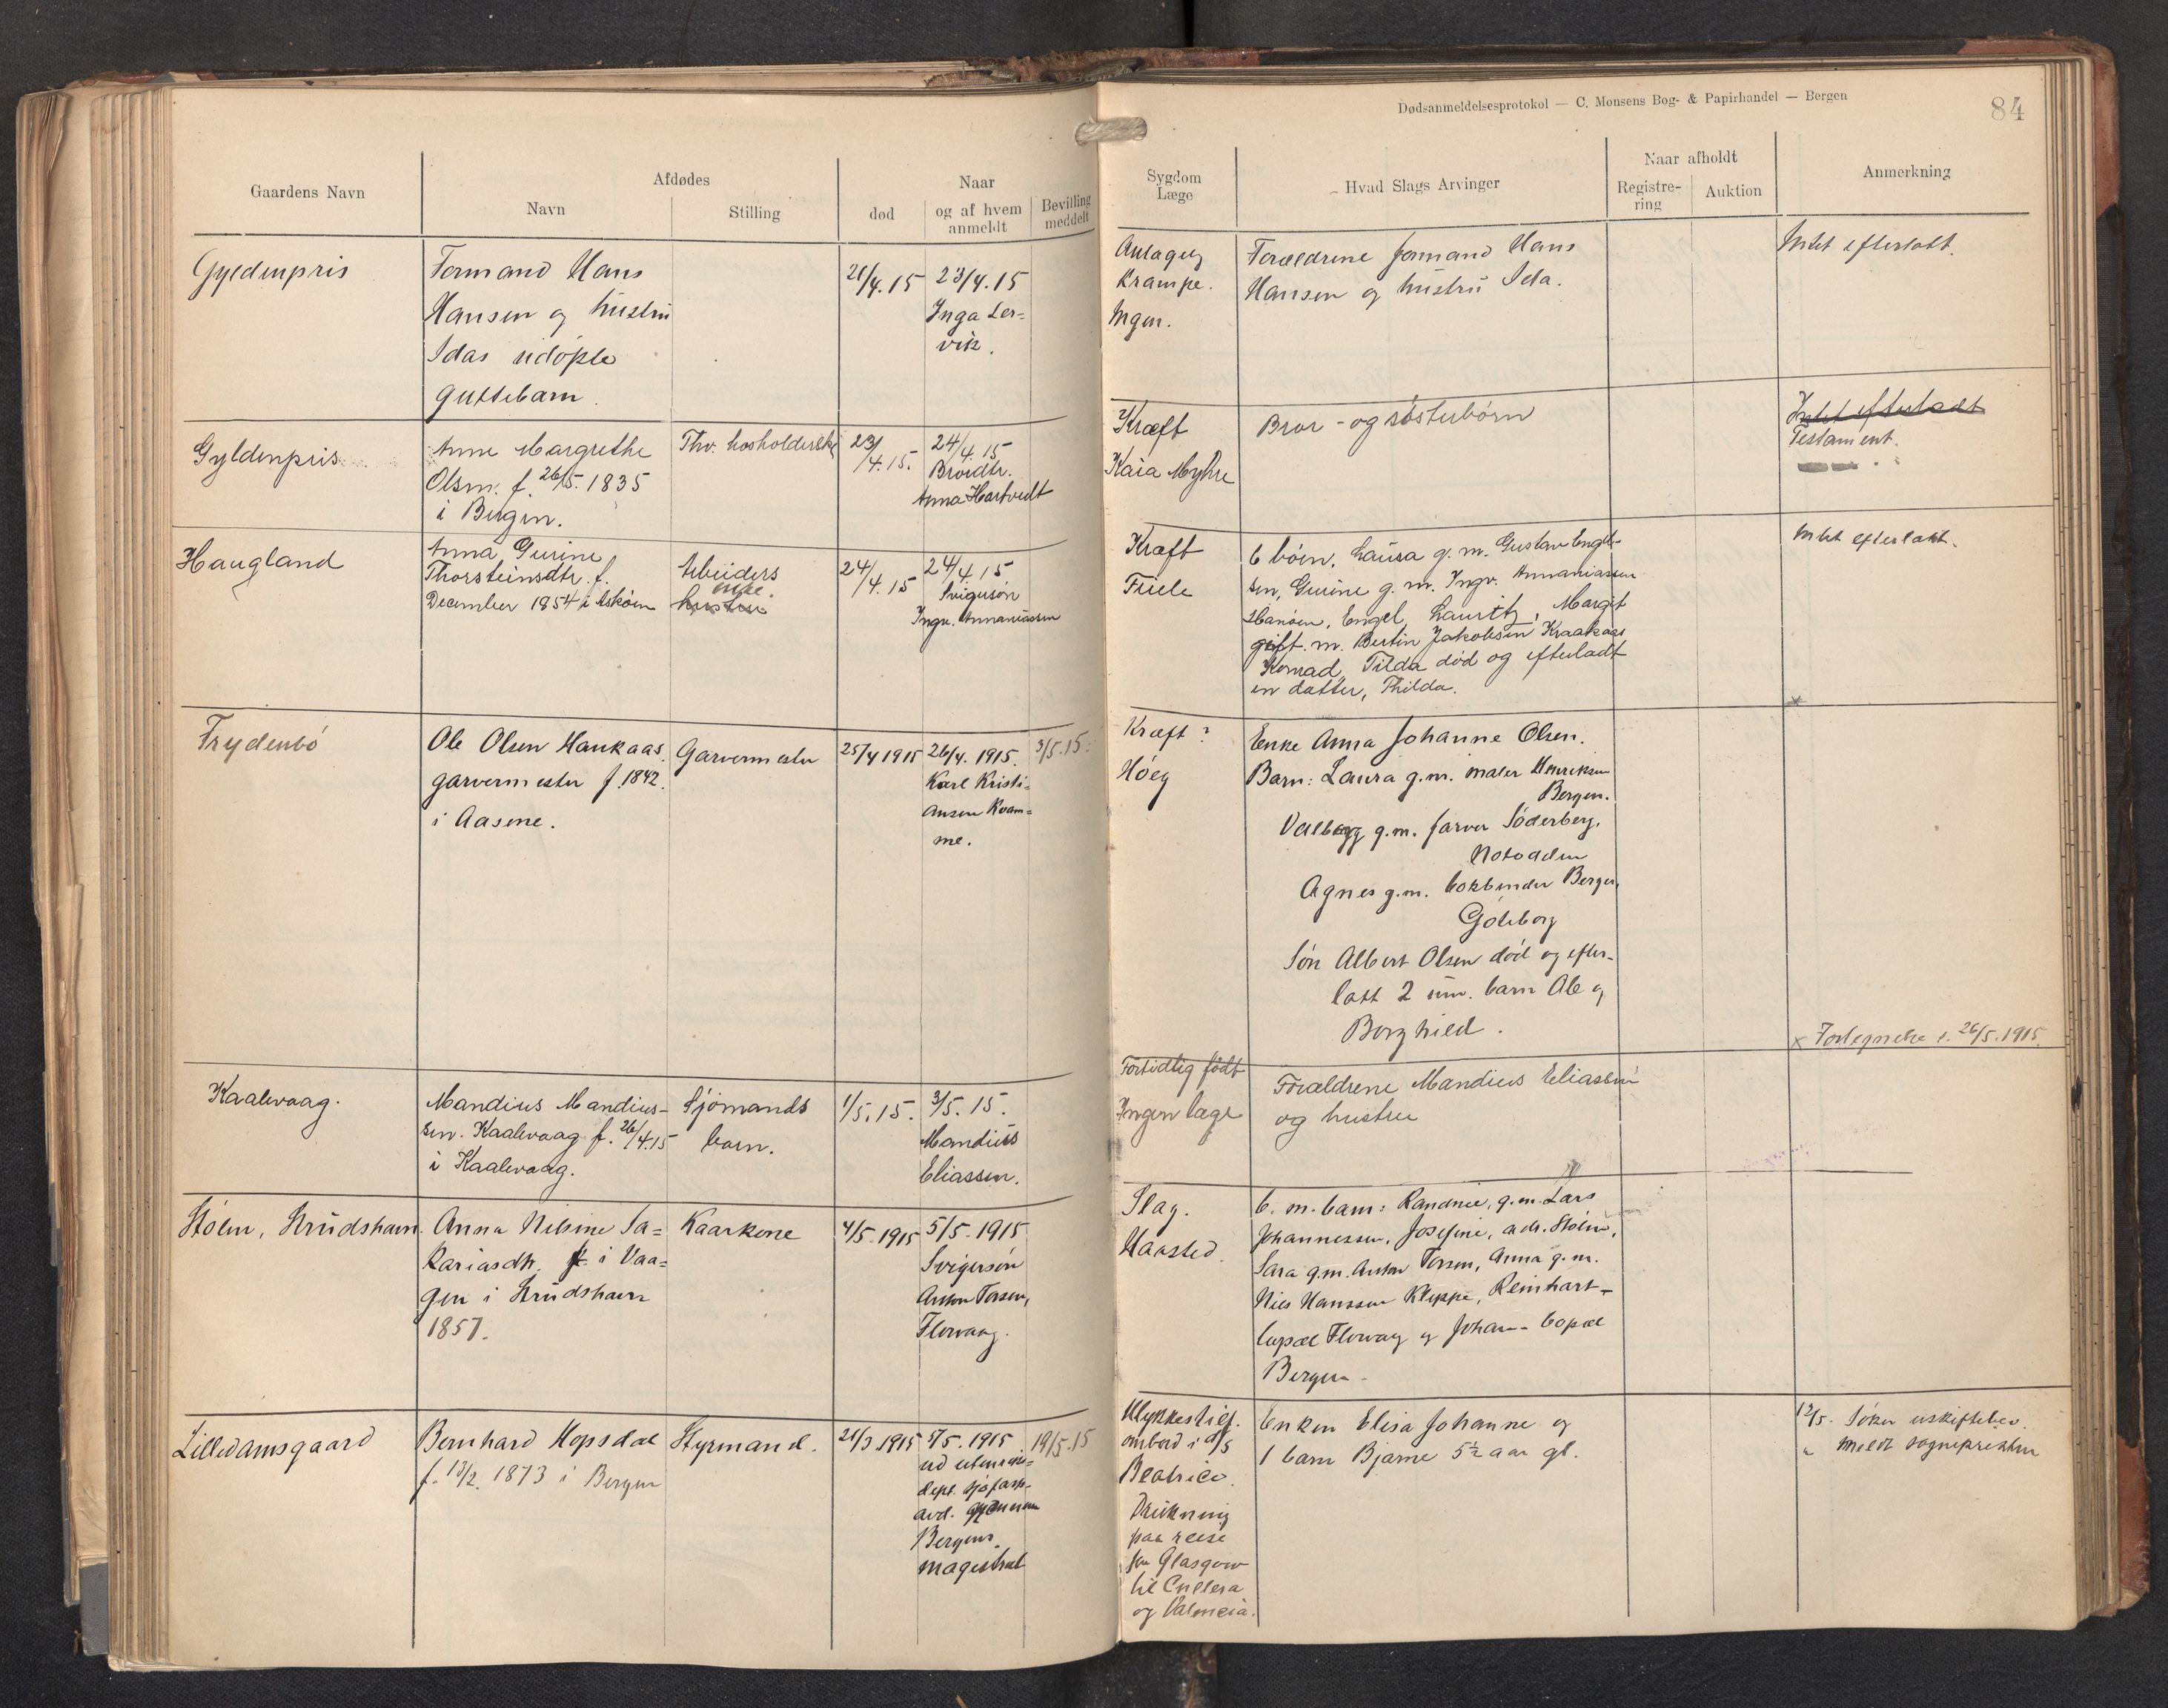 Dødsanmeldelsesprotokol — C. Monsens Bog- & Papirhandel — Bergen
84
Gaardens Navn
Afdødes
Navn
Stilling
Naar
død
og af hvem
anmeldt
Bevilling
meddelt
Sygdom
Læge
Hvad Slags Arvinger
Naar afholdt
Registre-
ring
Auktion
Anmerkning
Gyldenpris
Formand Hans
Hansen og hustru
Idas udøpte
guttebarn.
21/4.15
23/4.15
Inga Ler=
vik.
Antagelig
Krampe.
Ingen.
Forældrene formand Hans
Hansen og hustru Ida.
Intet efterlatt.
Gyldenpris
Anne Margrethe
Olsen. f. 26/5. 1835
i Bergen.
Thv. hosholderske
23/4.15.
24/4.15
Brordtr.
Anna Hartvedt
Kræft
Kaia Myhre
Bror- og søsterbørn
Intet efterladt
Testament.
Haugland
Anna Gurine
Thorsteinsdtr. f.
December 1854 i Askøen
Arbeiders
enke.
hustru
24/4.15
24/4.15
Svigersøn
Ingv. Annaniassen
Kræft
Friele
6 børn, Laura g. m. Gustav Engel-
sen, Gurine g. m. Ingv. Annaniassen
Hanøen, Engel, Lauritz, Margit
gift. m. Bertin Jakobsen Kraakaas
Konrad, Tilda død og efterladt
en datter, Thilda.
Intet efterlatt.
Frydenbø
Ole Olsen Haukaas
garvermester f. 1842.
i Aasene.
Garvermester
25/4 1915
26/4. 1915.
Karl Kristi=
ansen Kvam=
me.
3/5.15.
Kræft?
Høeg
Enke Anna Johanne Olsen.
Barn: Laura g.m. maler Henriksen
Bergen.
Valborg g.m. farver Søderberg.
Notodden
Agnes g.m. bokbinder Berger,
Göteborg
Søn Albert Olsen død og efter-
latt 2 um. barn Ole og
Borghild.
x
x Fortegnelse s. 26/5.1915.
Kaalvaag.
Mandius Mandius-
sen. Kaalvaag f. 26/4.15
i Kaalvaag.
Sjømands
barn.
1/5.15.
3/5.15.
Mandius
Eliassen.
Fortidlig født
Ingen læge
Forældrene Mandius Eliassen
og hustru
Stølen, Strudshavn.
Anna Nilsine Sa=
kariasdtr. f. i Vaa=
gen i Strudshavn
1857.
Kaarkone
4/5.1915
5/5.1915
Svigersøn
Anton Torsen,
Florvaag.
Slag.
Haasted.
6. m. barn: Randine, g.m. Lars
Johannessen, Josefine, adr. Stølen,
Sara g.m. Anton Torsen, Anna g.m.
Nils Hanssen Kleppe, Reinhart-
bopæl Florvaag og Johan- bopæl
Bergen-
Lilledamsgaard
Bernhard Hopsdal
f. 13/2. 1873 i Bergen
Styrmand.
21/3 1915
5/5.1915.
ud utenriks-
dept. sjøfarts-
avd. gjennem
Bergens
magistrat
19/5.15
Ulykkestilf.
ombord i d/s
Beatrice.
Drukning
paa reise
fra Glasgow
til Cullera
og Valencia.
Enken Elisa Johanne og
1 barn Bjarne 5½ aar gl.
12/5. Søker uskiftebev.
" meldt sognepresten